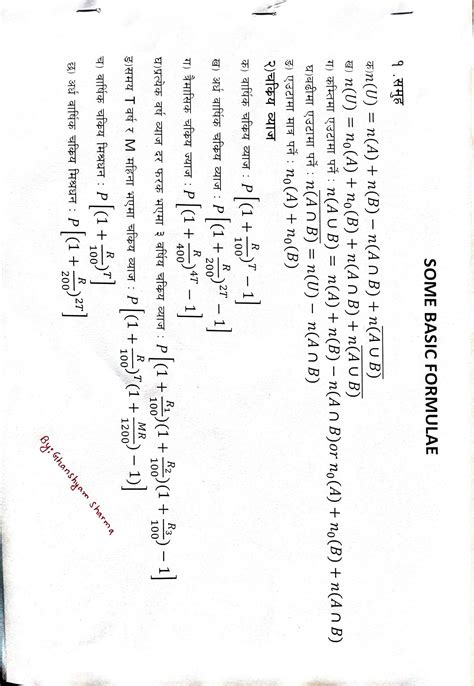 SOME BASIC FORMULAE
१ .समुह
क)n(U) = n(A) + n(B) − n(A ∩ B) + n(\overline{A ∪ B})
ख) n(U) = n₀(A) + n₀(B) + n(A ∩ B) + n(\overline{A ∪ B})
ग) कम्तिमा एउटामा पर्ने : n(A ∪ B) = n(A) + n(B) − n(A ∩ B)or n₀(A) + n₀(B) + n(A ∩ B)
घ)बढीमा एउटामा पर्ने : n(\overline{A ∩ B}) = n(U) − n(A ∩ B)
ङ) एउटामा मात्र पर्ने : n₀(A) + n₀(B)
२)चक्रिय व्याज
क) वार्षिक चक्रिय व्याज : P[(1 + R/100)^T − 1]
ख) अर्ध वार्षिक चक्रिय व्याज : P[(1 + R/200)^{2T} − 1]
ग) त्रैमासिक चक्रिय ज्याज : P[(1 + R/400)^{4T} − 1]
घ)प्रत्येक वर्ष व्याज दर फरक भएमा ३ वर्षिय चक्रिय व्याज : P[(1 + R₁/100)(1 + R₂/100)(1 + R₃/100) − 1]
ङ)समय T वर्ष र M महिना भएमा चक्रिय व्याज : P[(1 + R/100)^T(1 + MR/1200) − 1)]
च) वार्षिक चक्रिय मिश्रधन : P[(1 + R/100)^T]
छ) अर्ध वार्षिक चक्रिय मिश्रधन : P[(1 + R/200)^{2T}]
By: Ghanshyam Sharma